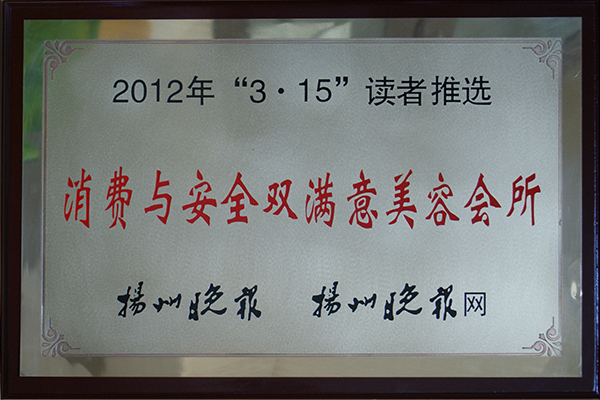 2012年“3·15”读者推选
消费与安全双满意美容会所
揚州晚報 揚州晚報网